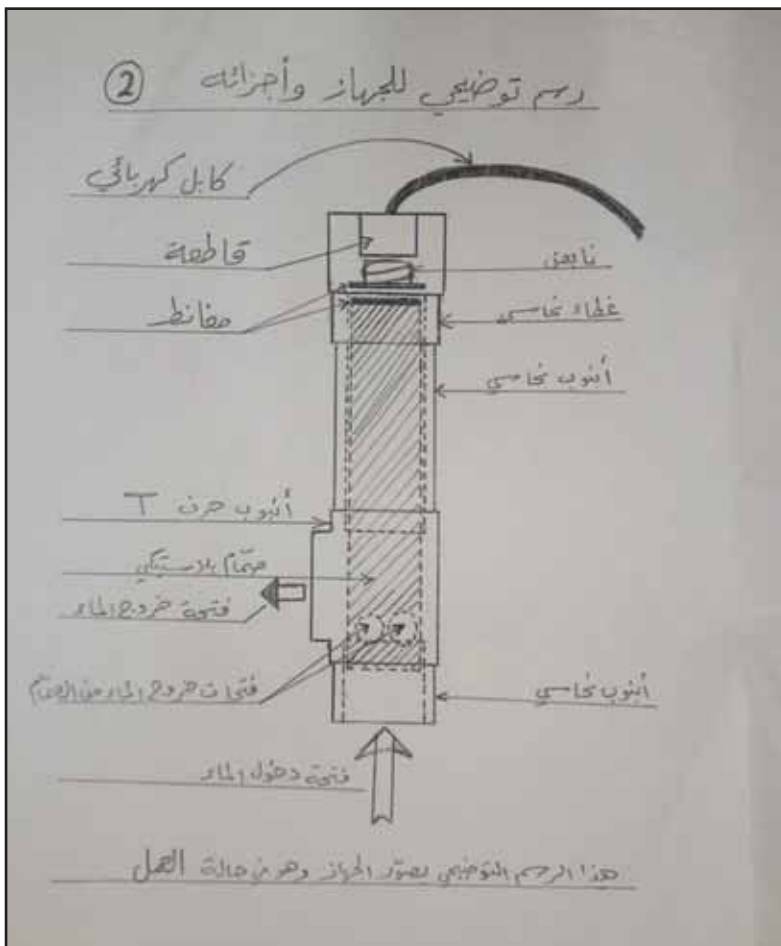 رسم توضيحي للجهاز وأجزائه ②
كابل كهربائي
قاطعة
نابض
مغانط
غطاء نحاسي
أنبوب نحاسي
أنبوب حرف T
صمّام بلاستيكي
فتحة خروج الماء
فتحات خروج الماء من الصمّام
أنبوب نحاسي
فتحة دخول الماء
هذا الرسم التوضيحي يصوّر الجهاز وهو في حالة العمل